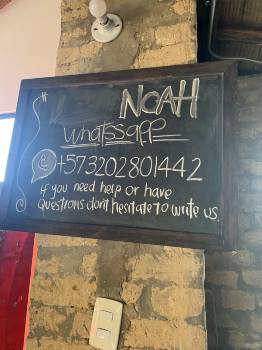 NOAH
Whatssapp
+573202801442
If you need help or have
Questions dont hesitate to write us